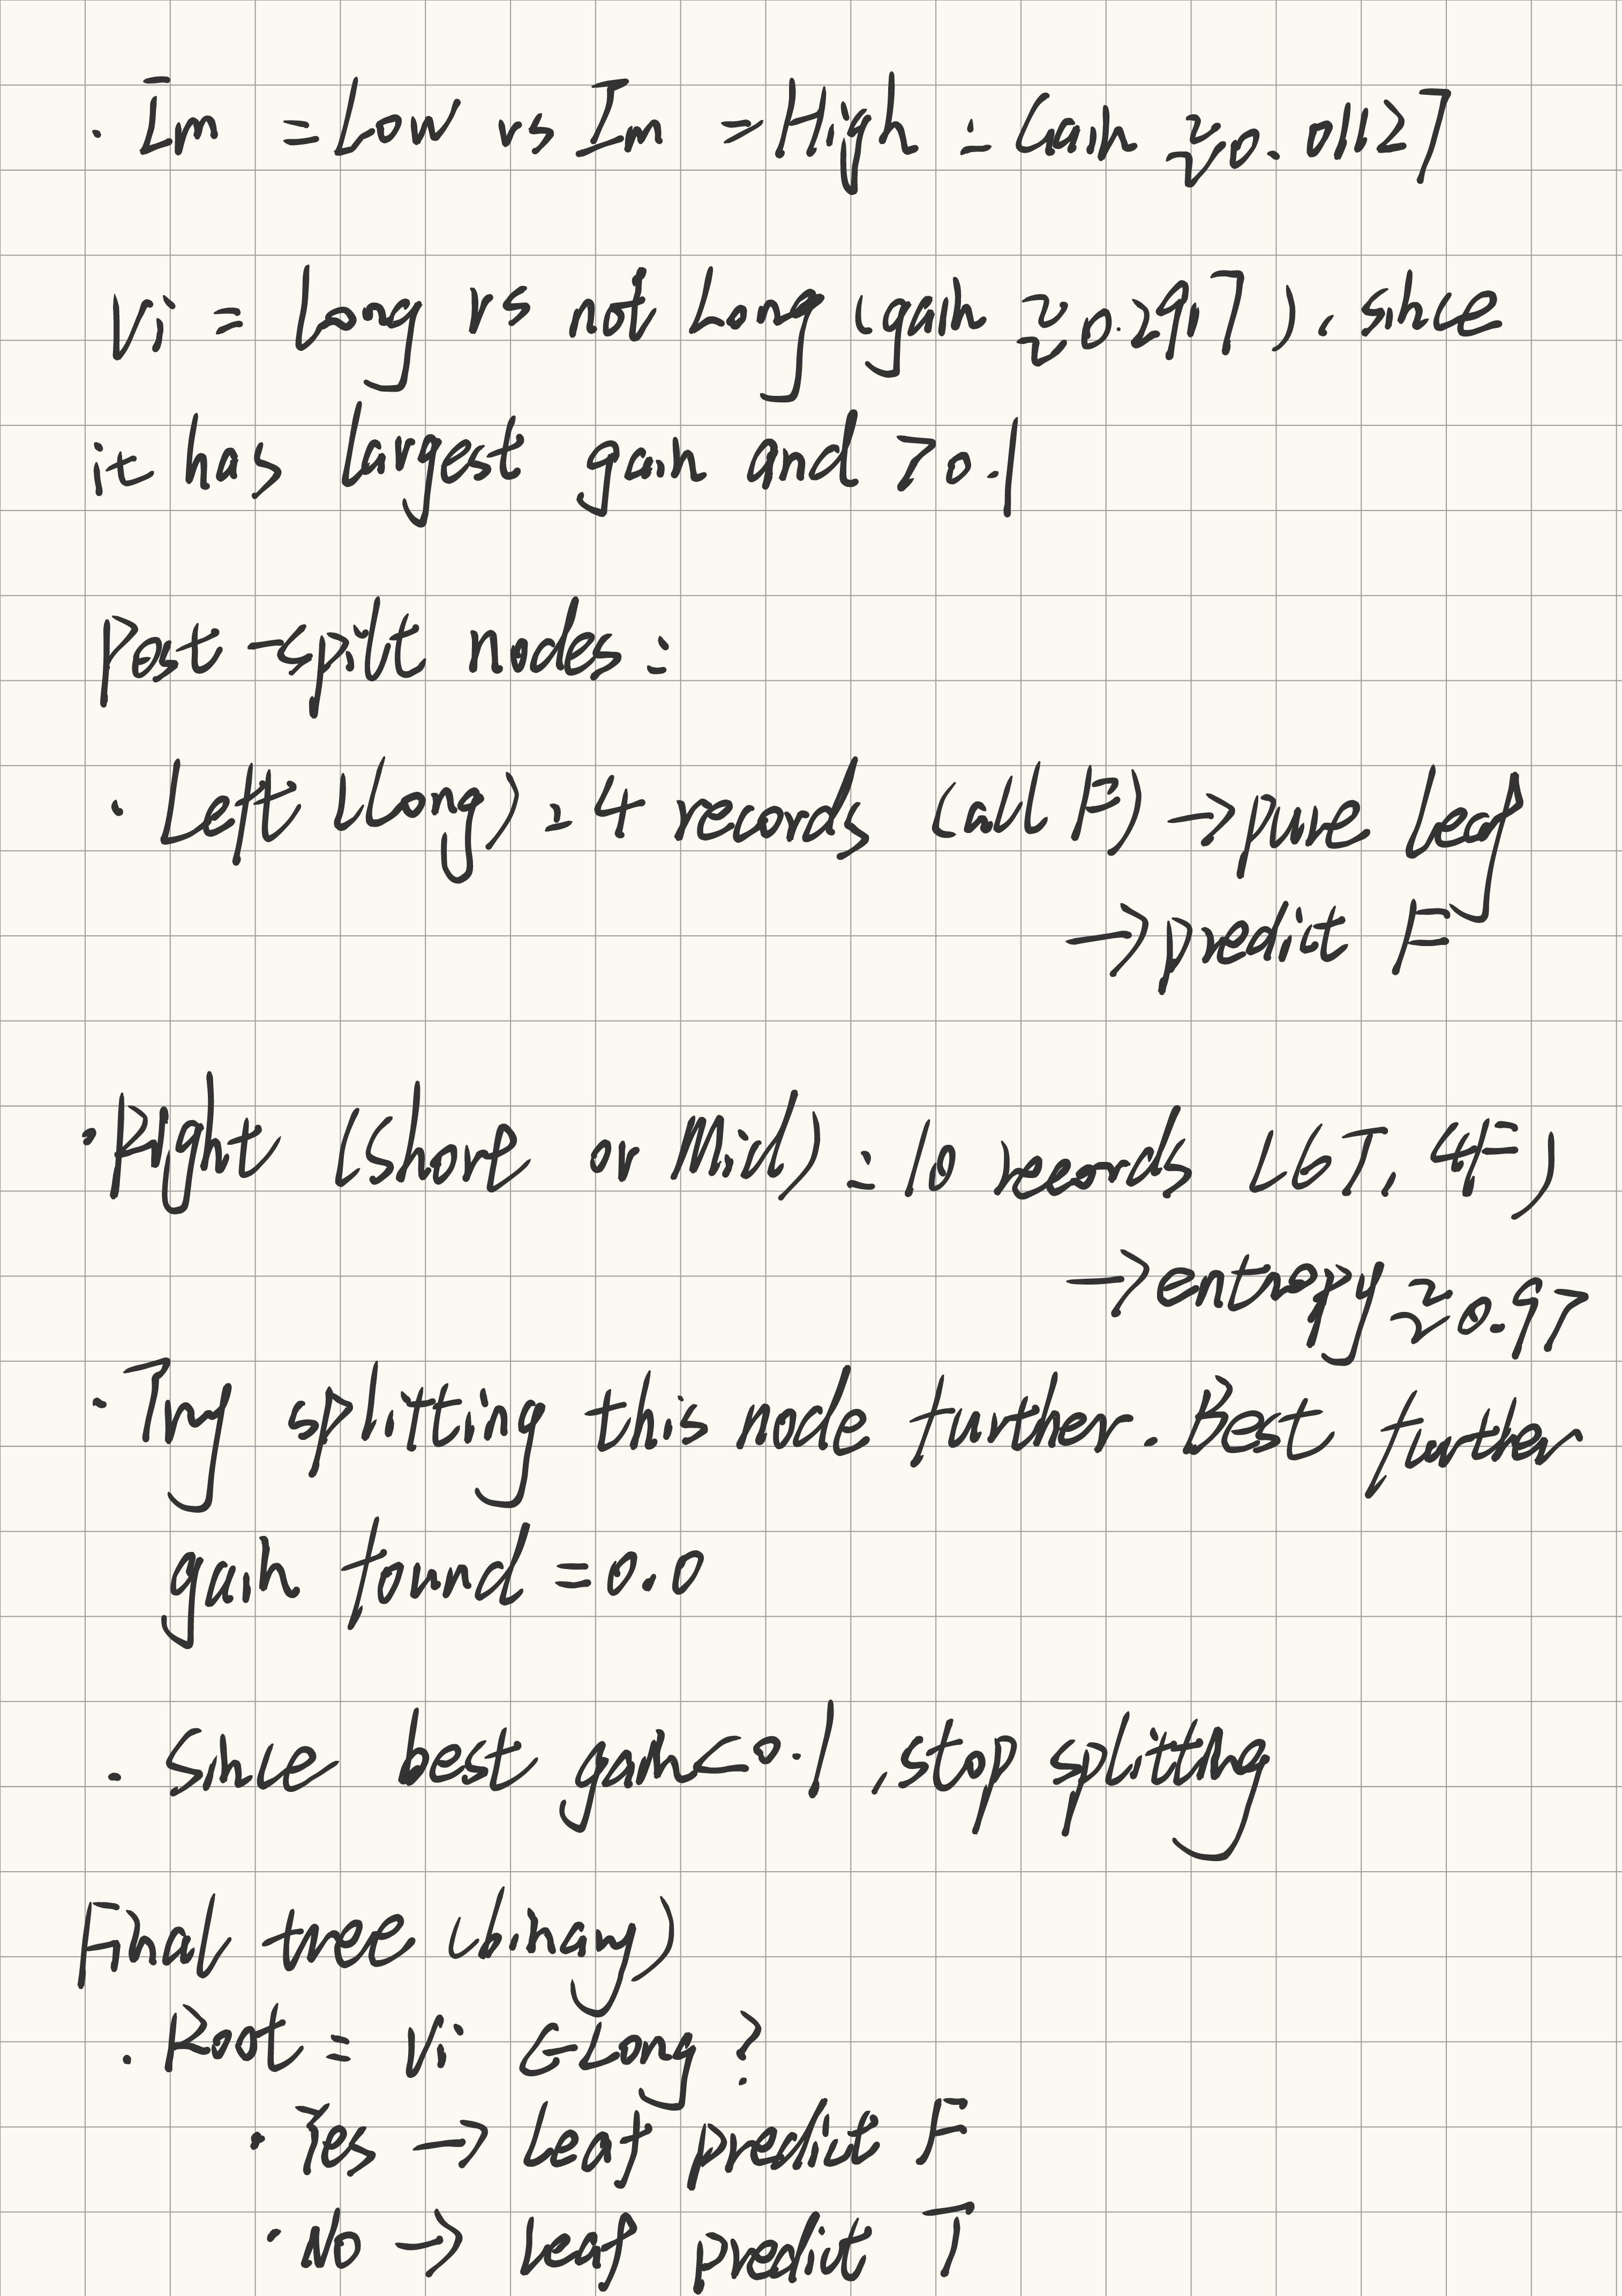 · Im = Low vs Im = High : Gain ≈ 0.01127
Vi = Long vs not Long (gain ≈ 0.2917), since
it has largest gain and > 0.1
Post-spilt nodes:
· Left (Long) : 4 records (all F) → pure leaf
→ predict F
· Right (Short or Mid) : 10 records (6T, 4F)
→ entropy ≈ 0.97
· Try splitting this node further. Best further
gain found = 0.0
· Since best gain < 0.1, stop splitting
Final tree (binary)
· Root : Vi ∈ Long ?
· Yes → Leaf predict F
· No → Leaf predict T